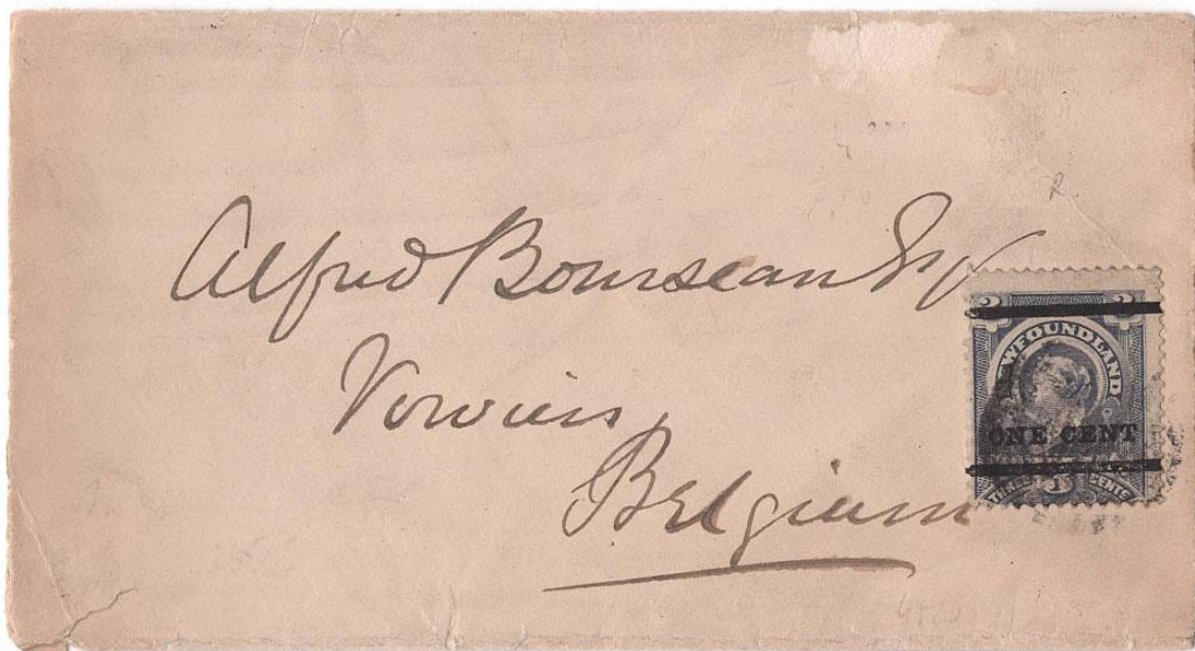 Alfred Bourseau Esq
Verviers,
Belgium
3 3
NEWFOUNDLAND
ONE CENT
THREE 3 CENTS